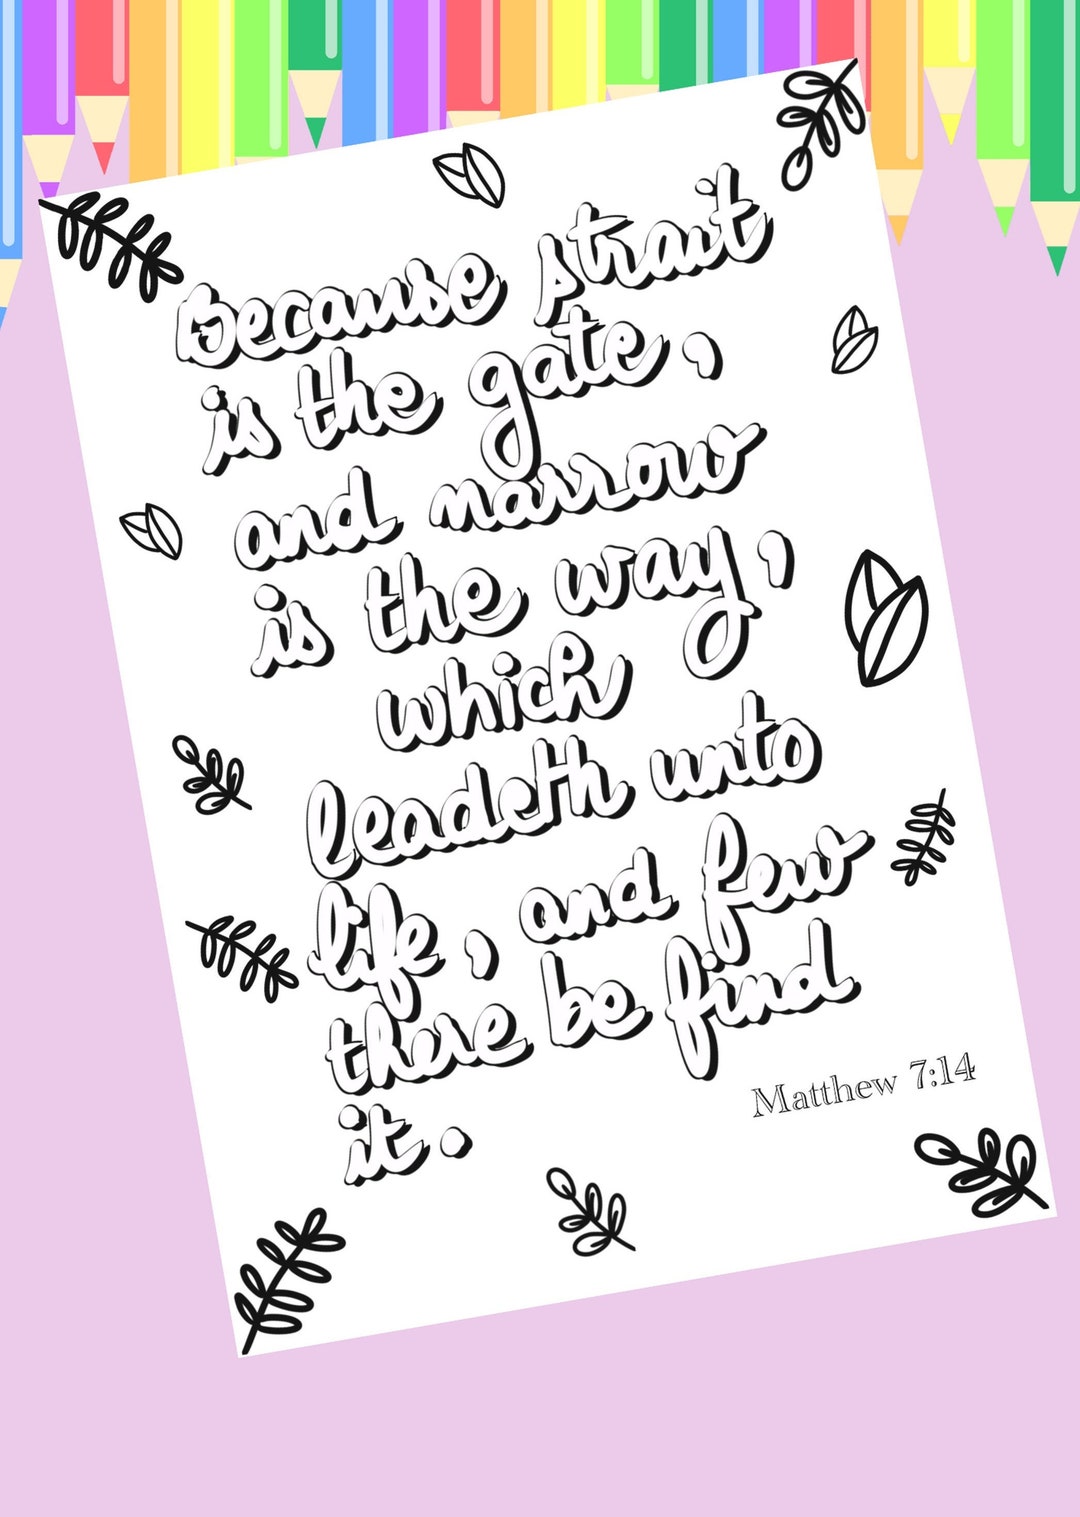 Because strait
is the gate,
and narrow
is the way,
which
leadeth unto
life, and few
there be find
it.
Matthew 7:14